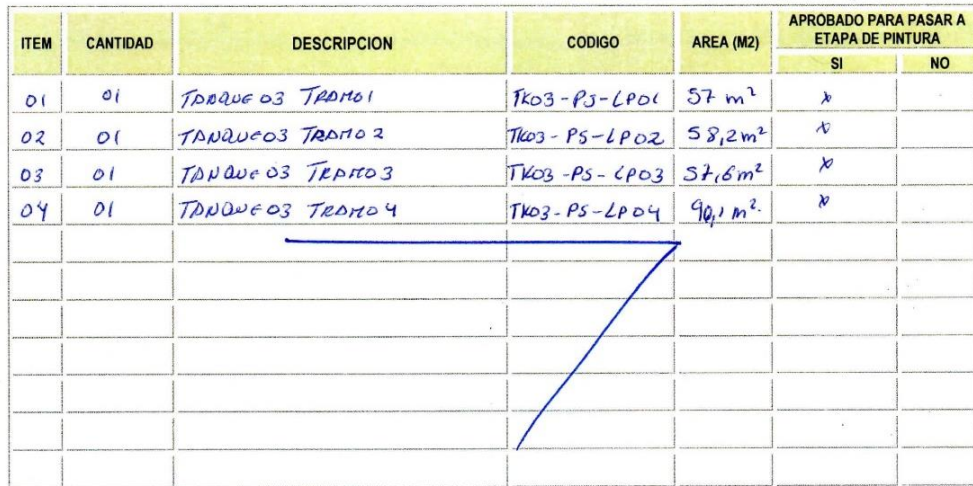 ITEM CANTIDAD DESCRIPCION CODIGO AREA (M2) APROBADO PARA PASAR A ETAPA DE PINTURA
SI NO
01 01 TANQUE 03 TRAMO 1 TK03-PS-LP01 57 m² x
02 01 TANQUE 03 TRAMO 2 TK03-PS-LP02 58,2 m² x
03 01 TANQUE 03 TRAMO 3 TK03-PS-LP03 57,6 m² x
04 01 TANQUE 03 TRAMO 4 TK03-PS-LP04 90,1 m². x